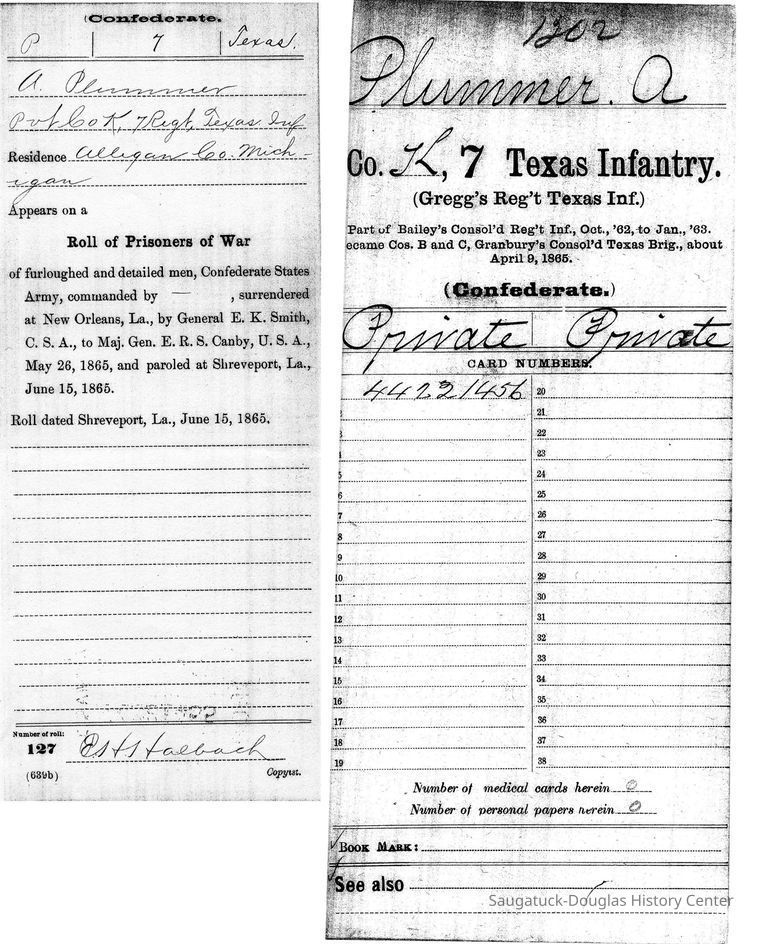 (Confederate.
P | 7 | Texas.
A. Plummer
Pvt Co K, 7 Regt, Texas Inf
Residence Allegan Co. Mich-
igan
Appears on a
Roll of Prisoners of War
of furloughed and detailed men, Confederate States
Army, commanded by — , surrendered
at New Orleans, La., by General E. K. Smith,
C. S. A., to Maj. Gen. E. R. S. Canby, U. S. A.,
May 26, 1865, and paroled at Shreveport, La.,
June 15, 1865.
Roll dated Shreveport, La., June 15, 1865.
Number of roll:
127
(639b)
Copyist.
1302
Plummer. A
Co. K, 7 Texas Infantry.
(Gregg's Reg't Texas Inf.)
Part of Bailey's Consol'd Reg't Inf., Oct., '62, to Jan., '63.
ecame Cos. B and C, Granbury's Consol'd Texas Brig., about
April 9, 1865.
(Confederate.)
Private | Private
CARD NUMBERS.
44221456 20
21
22
23
4 24
5 25
6 26
7 27
8 28
9 29
10 30
11 31
12 32
13 33
14 34
15 35
16 36
17 37
18 38
19
Number of medical cards herein 0
Number of personal papers herein 0
BOOK MARK:
See also
Saugatuck-Douglas History Center